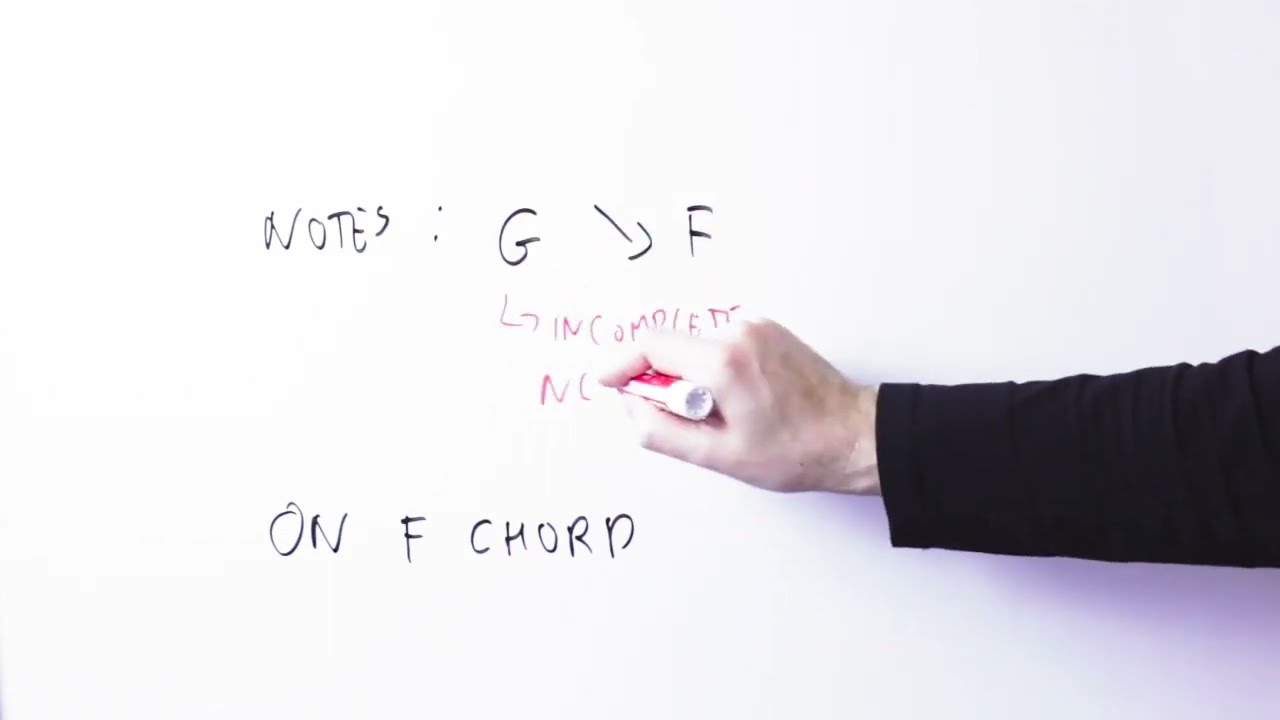 NOTES : G ↘ F
↳ INCOMPLETE
ON F CHORD